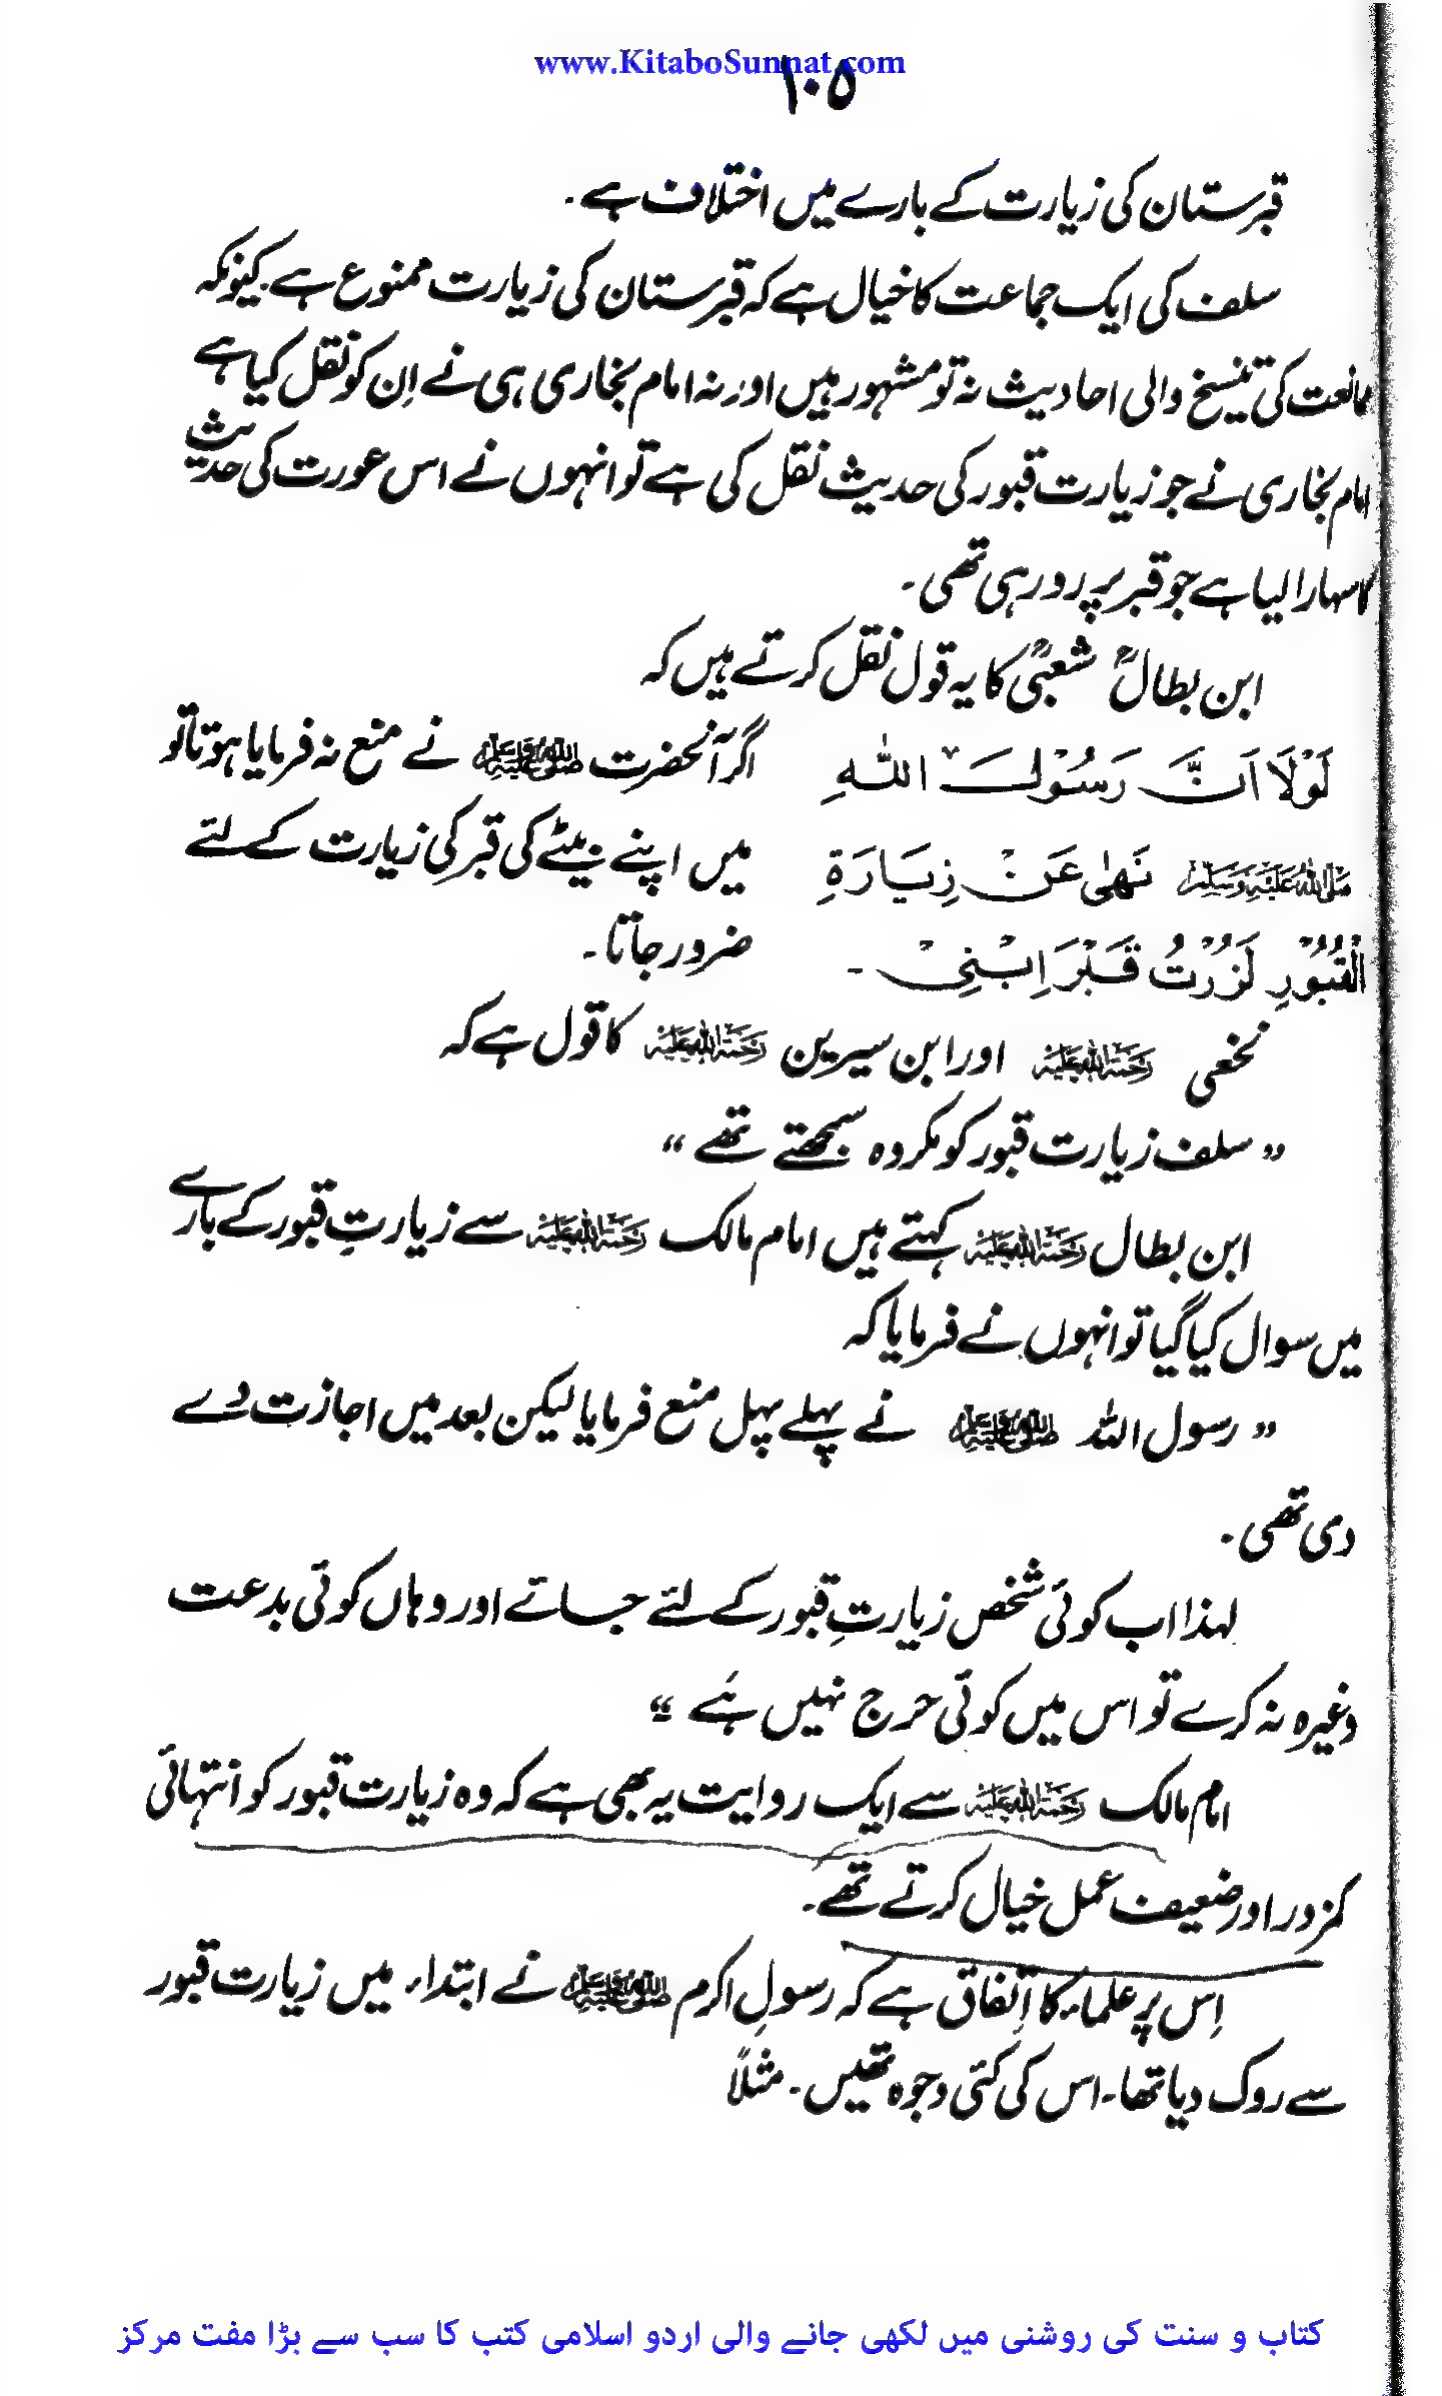 www.KitaboSunnat.com
۱۰۵
قبرستان کی زیارت کے بارے میں اختلاف ہے۔
سلف کی ایک جماعت کا خیال ہے کہ قبرستان کی زیارت ممنوع ہے۔ کیونکہ
ممانعت کی تنسیخ والی احادیث نہ تو مشہور ہیں اور نہ امام بخاری ہی نے اِن کو نقل کیا ہے
امام بخاری نے جو زیارت قبور کی حدیث نقل کی ہے تو انہوں نے اس عورت کی حدیث
کا سہارا لیا ہے جو قبر پر رو رہی تھی۔
ابن بطالؒ شعبیؒ کا یہ قول نقل کرتے ہیں کہ
لَوْلَا اَنَّ رَسُوْلَ اللّٰهِ
صَلَّى اللهُ عَلَيْهِ وَسَلَّمَ نَهٰى عَنْ زِيَارَةِ
الْقُبُوْرِ لَزُرْتُ قَبْرَ اِبْنِىْ۔
اگر آنحضرت ﷺ نے منع نہ فرمایا ہوتا تو
میں اپنے بیٹے کی قبر کی زیارت کے لئے
ضرور جاتا۔
نخعی رحمۃ اللہ علیہ اور ابن سیرین رحمۃ اللہ علیہ کا قول ہے کہ
”سلف زیارت قبور کو مکروہ سمجھتے تھے“
ابن بطال رحمۃ اللہ علیہ کہتے ہیں امام مالک رحمۃ اللہ علیہ سے زیارتِ قبور کے بارے
میں سوال کیا گیا تو انہوں نے فرمایا کہ
”رسول اللہ ﷺ نے پہلے پہل منع فرمایا لیکن بعد میں اجازت دے
دی تھی۔
لہذا اب کوئی شخص زیارتِ قبور کے لئے جائے اور وہاں کوئی بدعت
وغیرہ نہ کرے تو اس میں کوئی حرج نہیں ہے“
امام مالک رحمۃ اللہ علیہ سے ایک روایت یہ بھی ہے کہ وہ زیارت قبور کو انتہائی
کمزور اور ضعیف عمل خیال کرتے تھے۔
اِس پر علماء کا اِتفاق ہے کہ رسولِ اکرم ﷺ نے ابتداء میں زیارت قبور
سے روک دیا تھا۔ اس کی کئی وجوہ تھیں۔ مثلاً
کتاب و سنت کی روشنی میں لکھی جانے والی اردو اسلامی کتب کا سب سے بڑا مفت مرکز